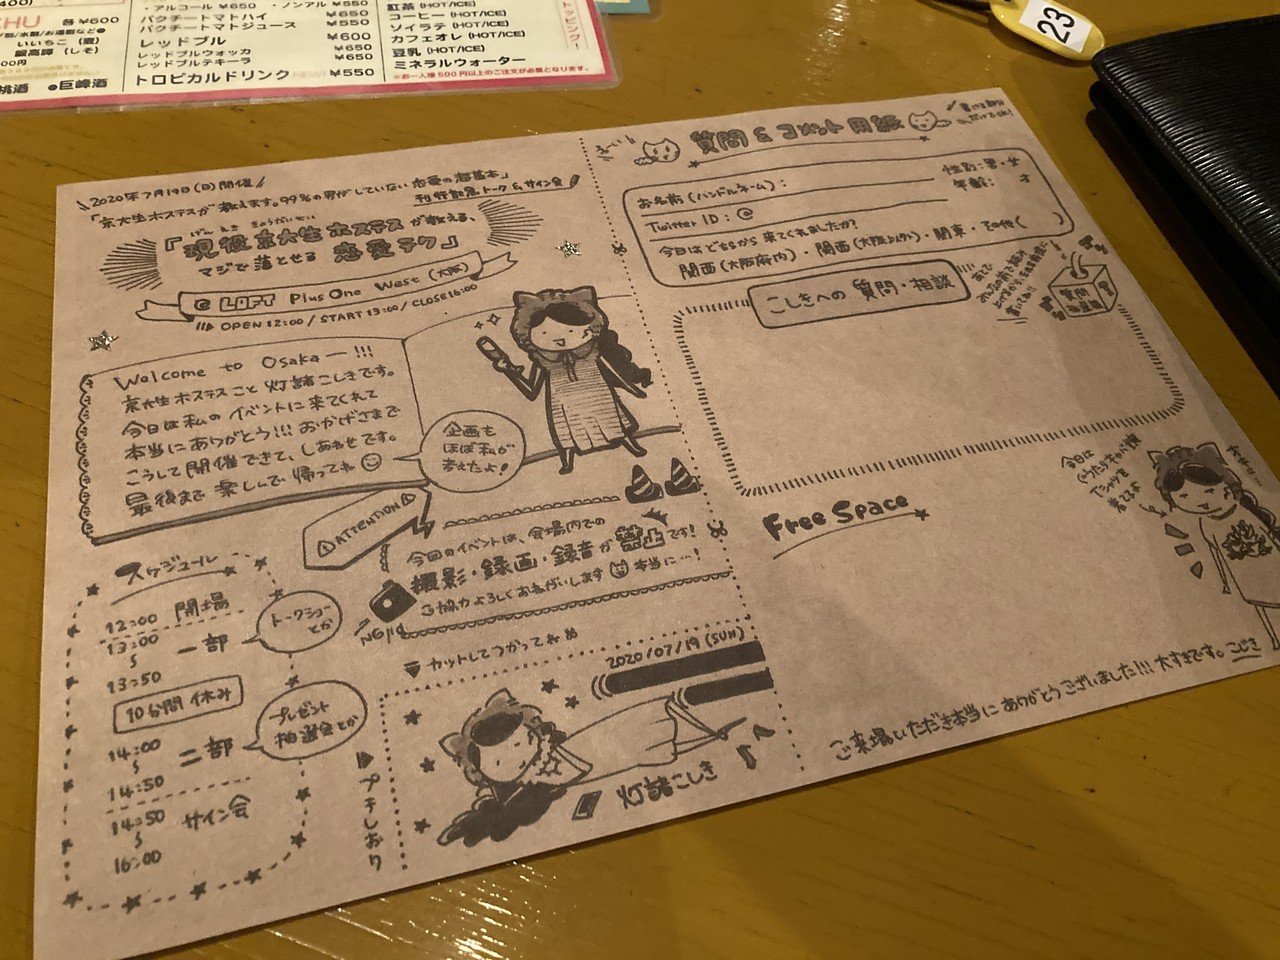 ・アルコール ¥650 ・ノンアル ¥550
パクチートマトハイ ¥650
パクチートマトジュース ¥550
レッドブル ¥600
レッドブルウォッカ ¥650
レッドブルテキーラ ¥650
トロピカルドリンク ¥550
各¥600
いいちこ(麦)
鍛高譚(しそ)
●巨峰酒
紅茶(HOT/ICE)
コーヒー(HOT/ICE)
ソイラテ(HOT/ICE)
カフェオレ(HOT/ICE)
豆乳(HOT/ICE)
ミネラルウォーター
※お一人様500円以上のご注文が必要となります。
トッピング
23
2020年7月19日(日)開催
「京大生ホステスが教えます。99%の男がしていない恋愛の超基本」
刊行記念トーク&サイン会
げんえき きょうだいせい
『現役京大生ホステスが教える、
マジで落とせる恋愛テク』
@ LOFT PlusOne West (大阪)
OPEN 12:00 / START 13:00 / CLOSE 16:00
Welcome to Osaka ー!!!
京大生ホステスこと 灯諸こしきです。
今日は私のイベントに来てくれて
本当にありがとう!!! おかげさまで
こうして開催できて、しあわせです。
最後まで楽しんで帰ってね
企画も
ほぼ私が
考えたよ!
ATTENTION
今回のイベントは、会場内での
撮影・録画・録音が禁止です!
ご協力よろしくおねがいします 本当に…!
NG!!
スケジュール
12:00 開場
13:00
〜
13:50
一部
トークショー
とか
10分間 休み
14:00
〜
14:50
二部
プレゼント
抽選会とか
14:50
〜
16:00
サイン会
▼カットしてつかってね
▲プチしおり
2020/07/19 (SUN)
灯諸こしき
質問&コメント用紙
お名前(ハンドルネーム):
性別:男・女
年齢: さ
Twitter ID: @
今日はどちらから来てくれましたか?
関西(大阪府内)・関西(大阪以外)・関東・その他( )
こしきへの 質問・相談
質問
Free Space
今日は
Tシャツを
着てるよ
ご来場いただき本当にありがとうございました!!! 大すきです。こしき